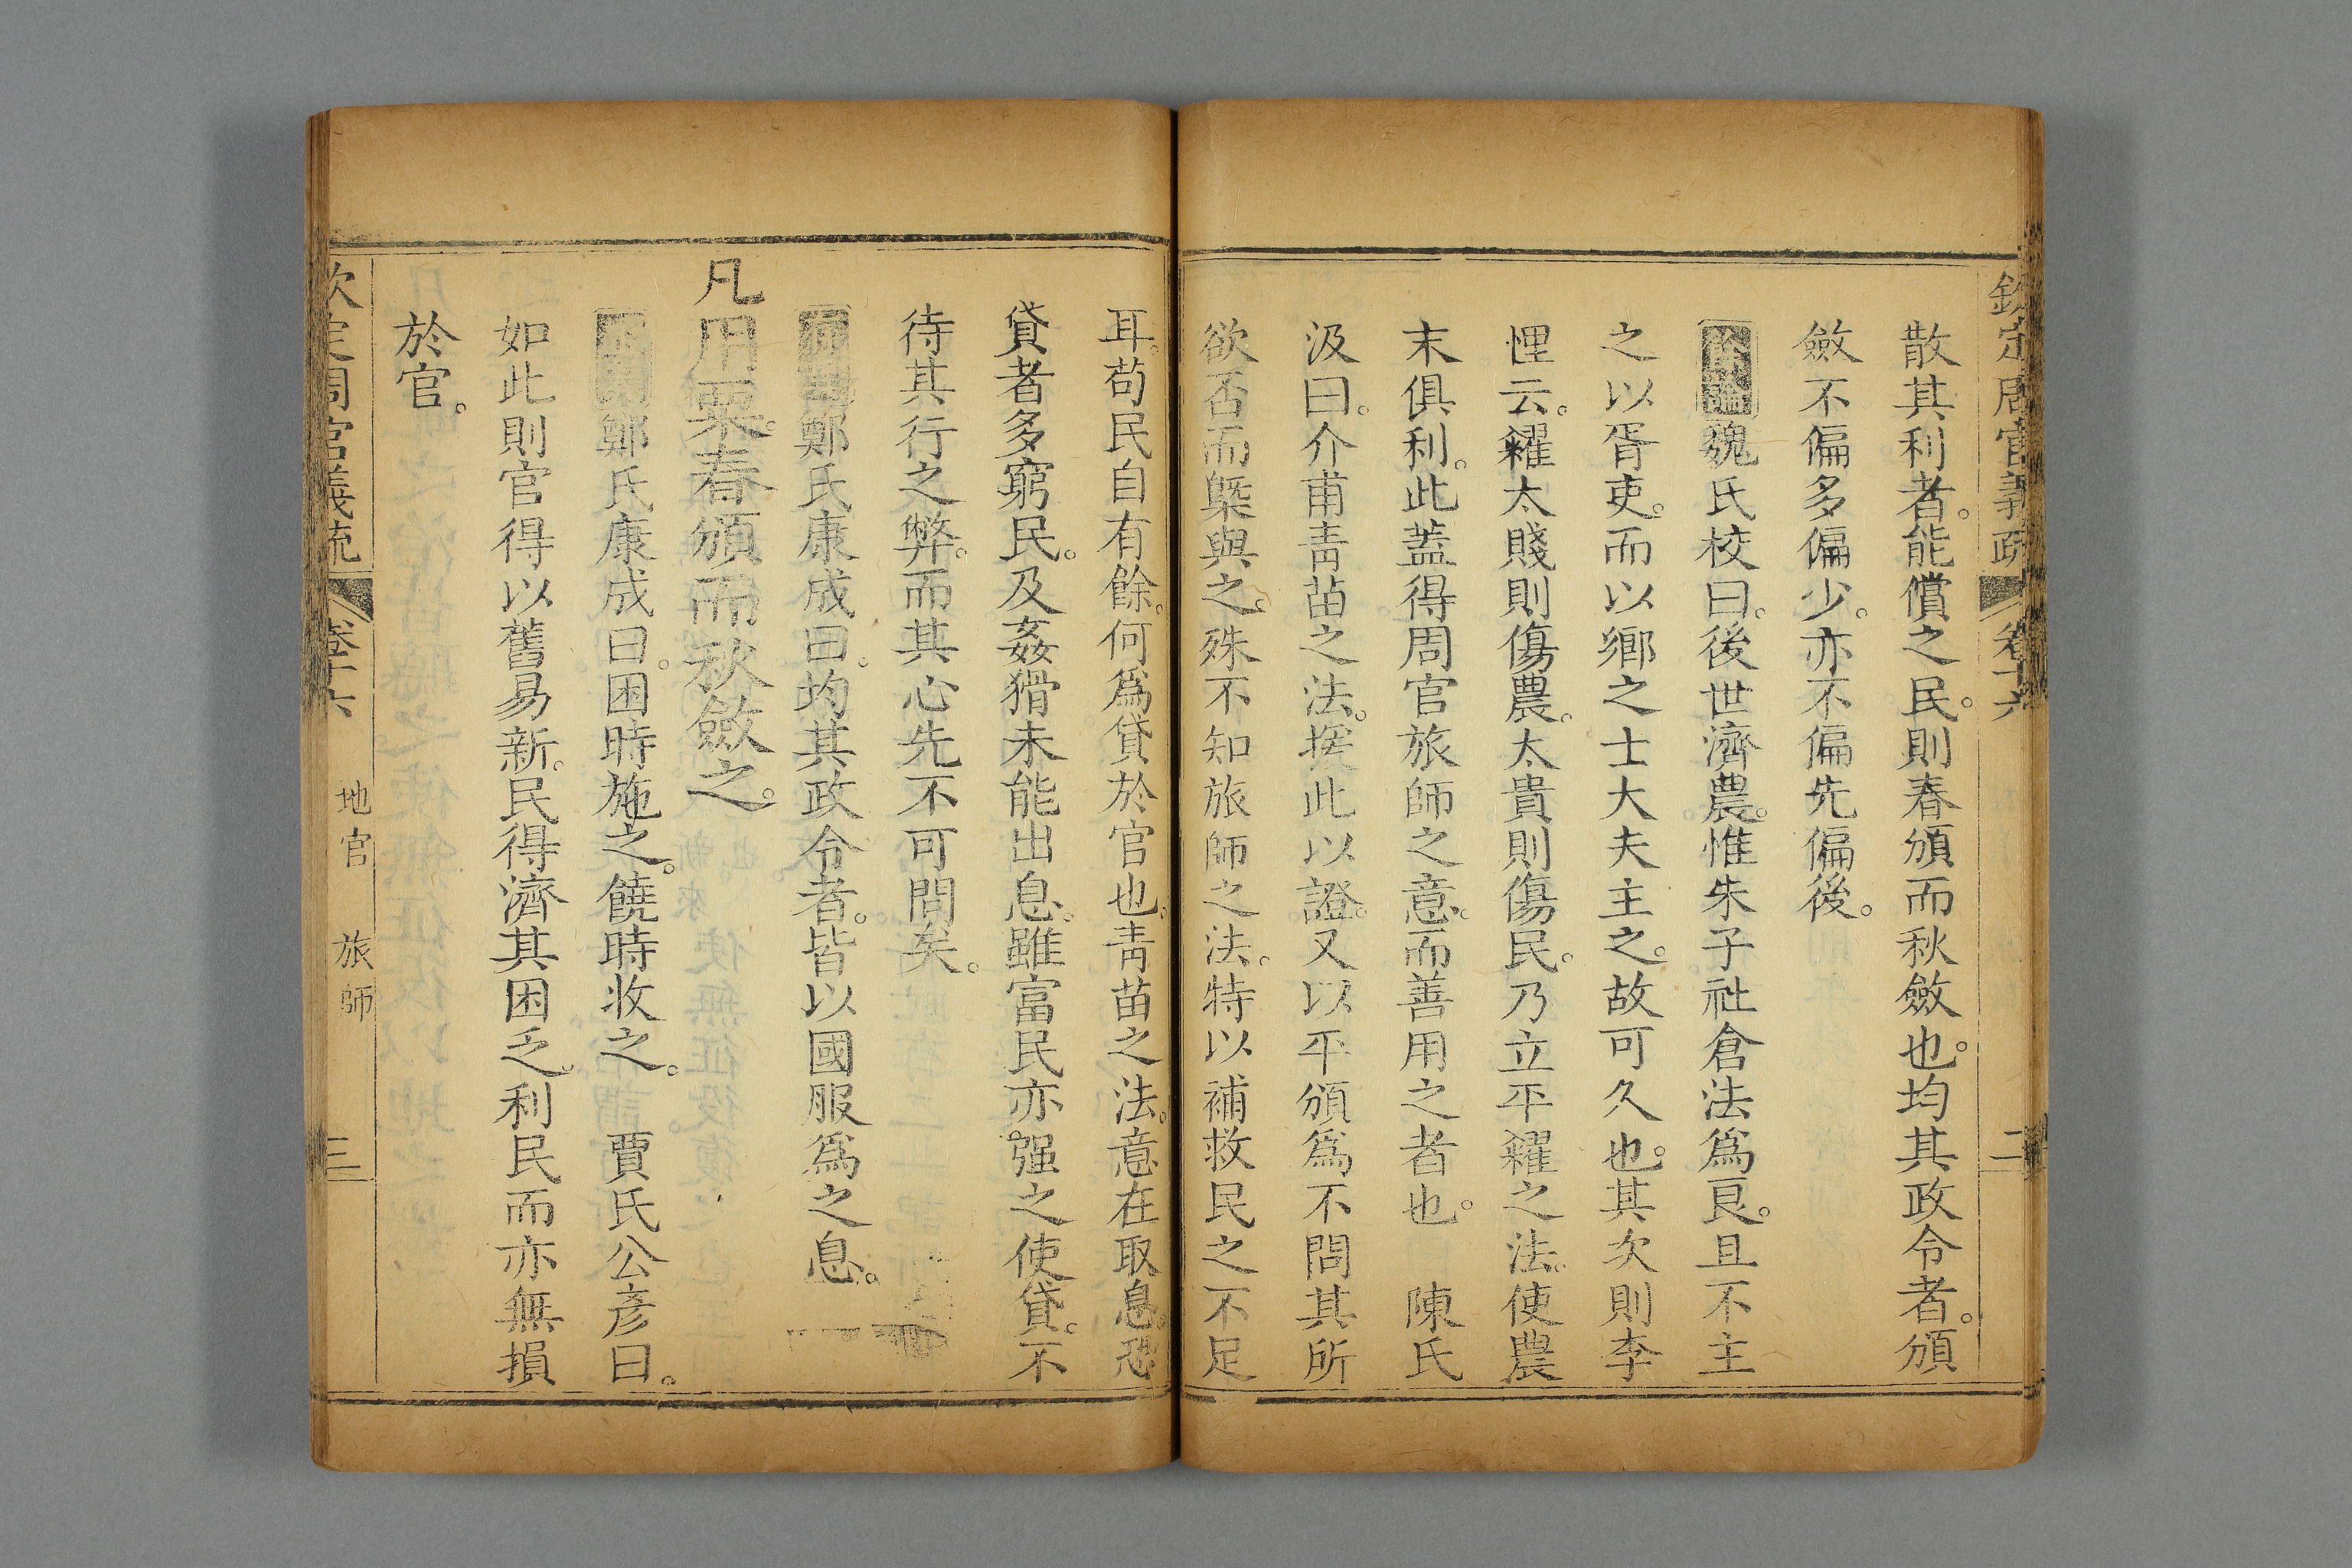 欽定周官義疏 卷十六 二
散其利者。能償之民。則春頒而秋斂也。均其政令者。頒
斂不偏多偏少。亦不偏先偏後。
魏氏校曰。後世濟農。惟朱子社倉法爲良。且不主
之以胥吏。而以鄉之士大夫主之。故可久也。其次則李
悝云。糴太賤則傷農。太貴則傷民。乃立平糴之法。使農
末俱利。此蓋得周官旅師之意。而善用之者也。 陳氏
汲曰。介甫靑苗之法。援此以證。又以平頒爲不問其所
欲否而槩與之。殊不知旅師之法。特以補救民之不足
耳。苟民自有餘。何爲貸於官也。靑苗之法。意在取息。恐
貸者多窮民。及姦猾未能出息。雖富民亦强之使貸。不
待其行之弊。而其心先不可問矣。
鄭氏康成曰。均其政令者。皆以國服爲之息。
凡用粟。春頒而秋斂之。
鄭氏康成曰。困時施之。饒時收之。 賈氏公彥曰。
如此則官得以舊易新。民得濟其困乏。利民而亦無損
於官。
欽定周官義疏 卷十六 地官 旅師 三